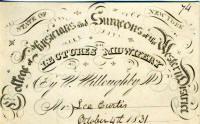 74
STATE OF NEW YORK
College of Physicians and Surgeons of the Western District
LECTURES MIDWIFERY
(By W. Willoughby M.D.)
Mr. Lee Curtis
October 4th 1831